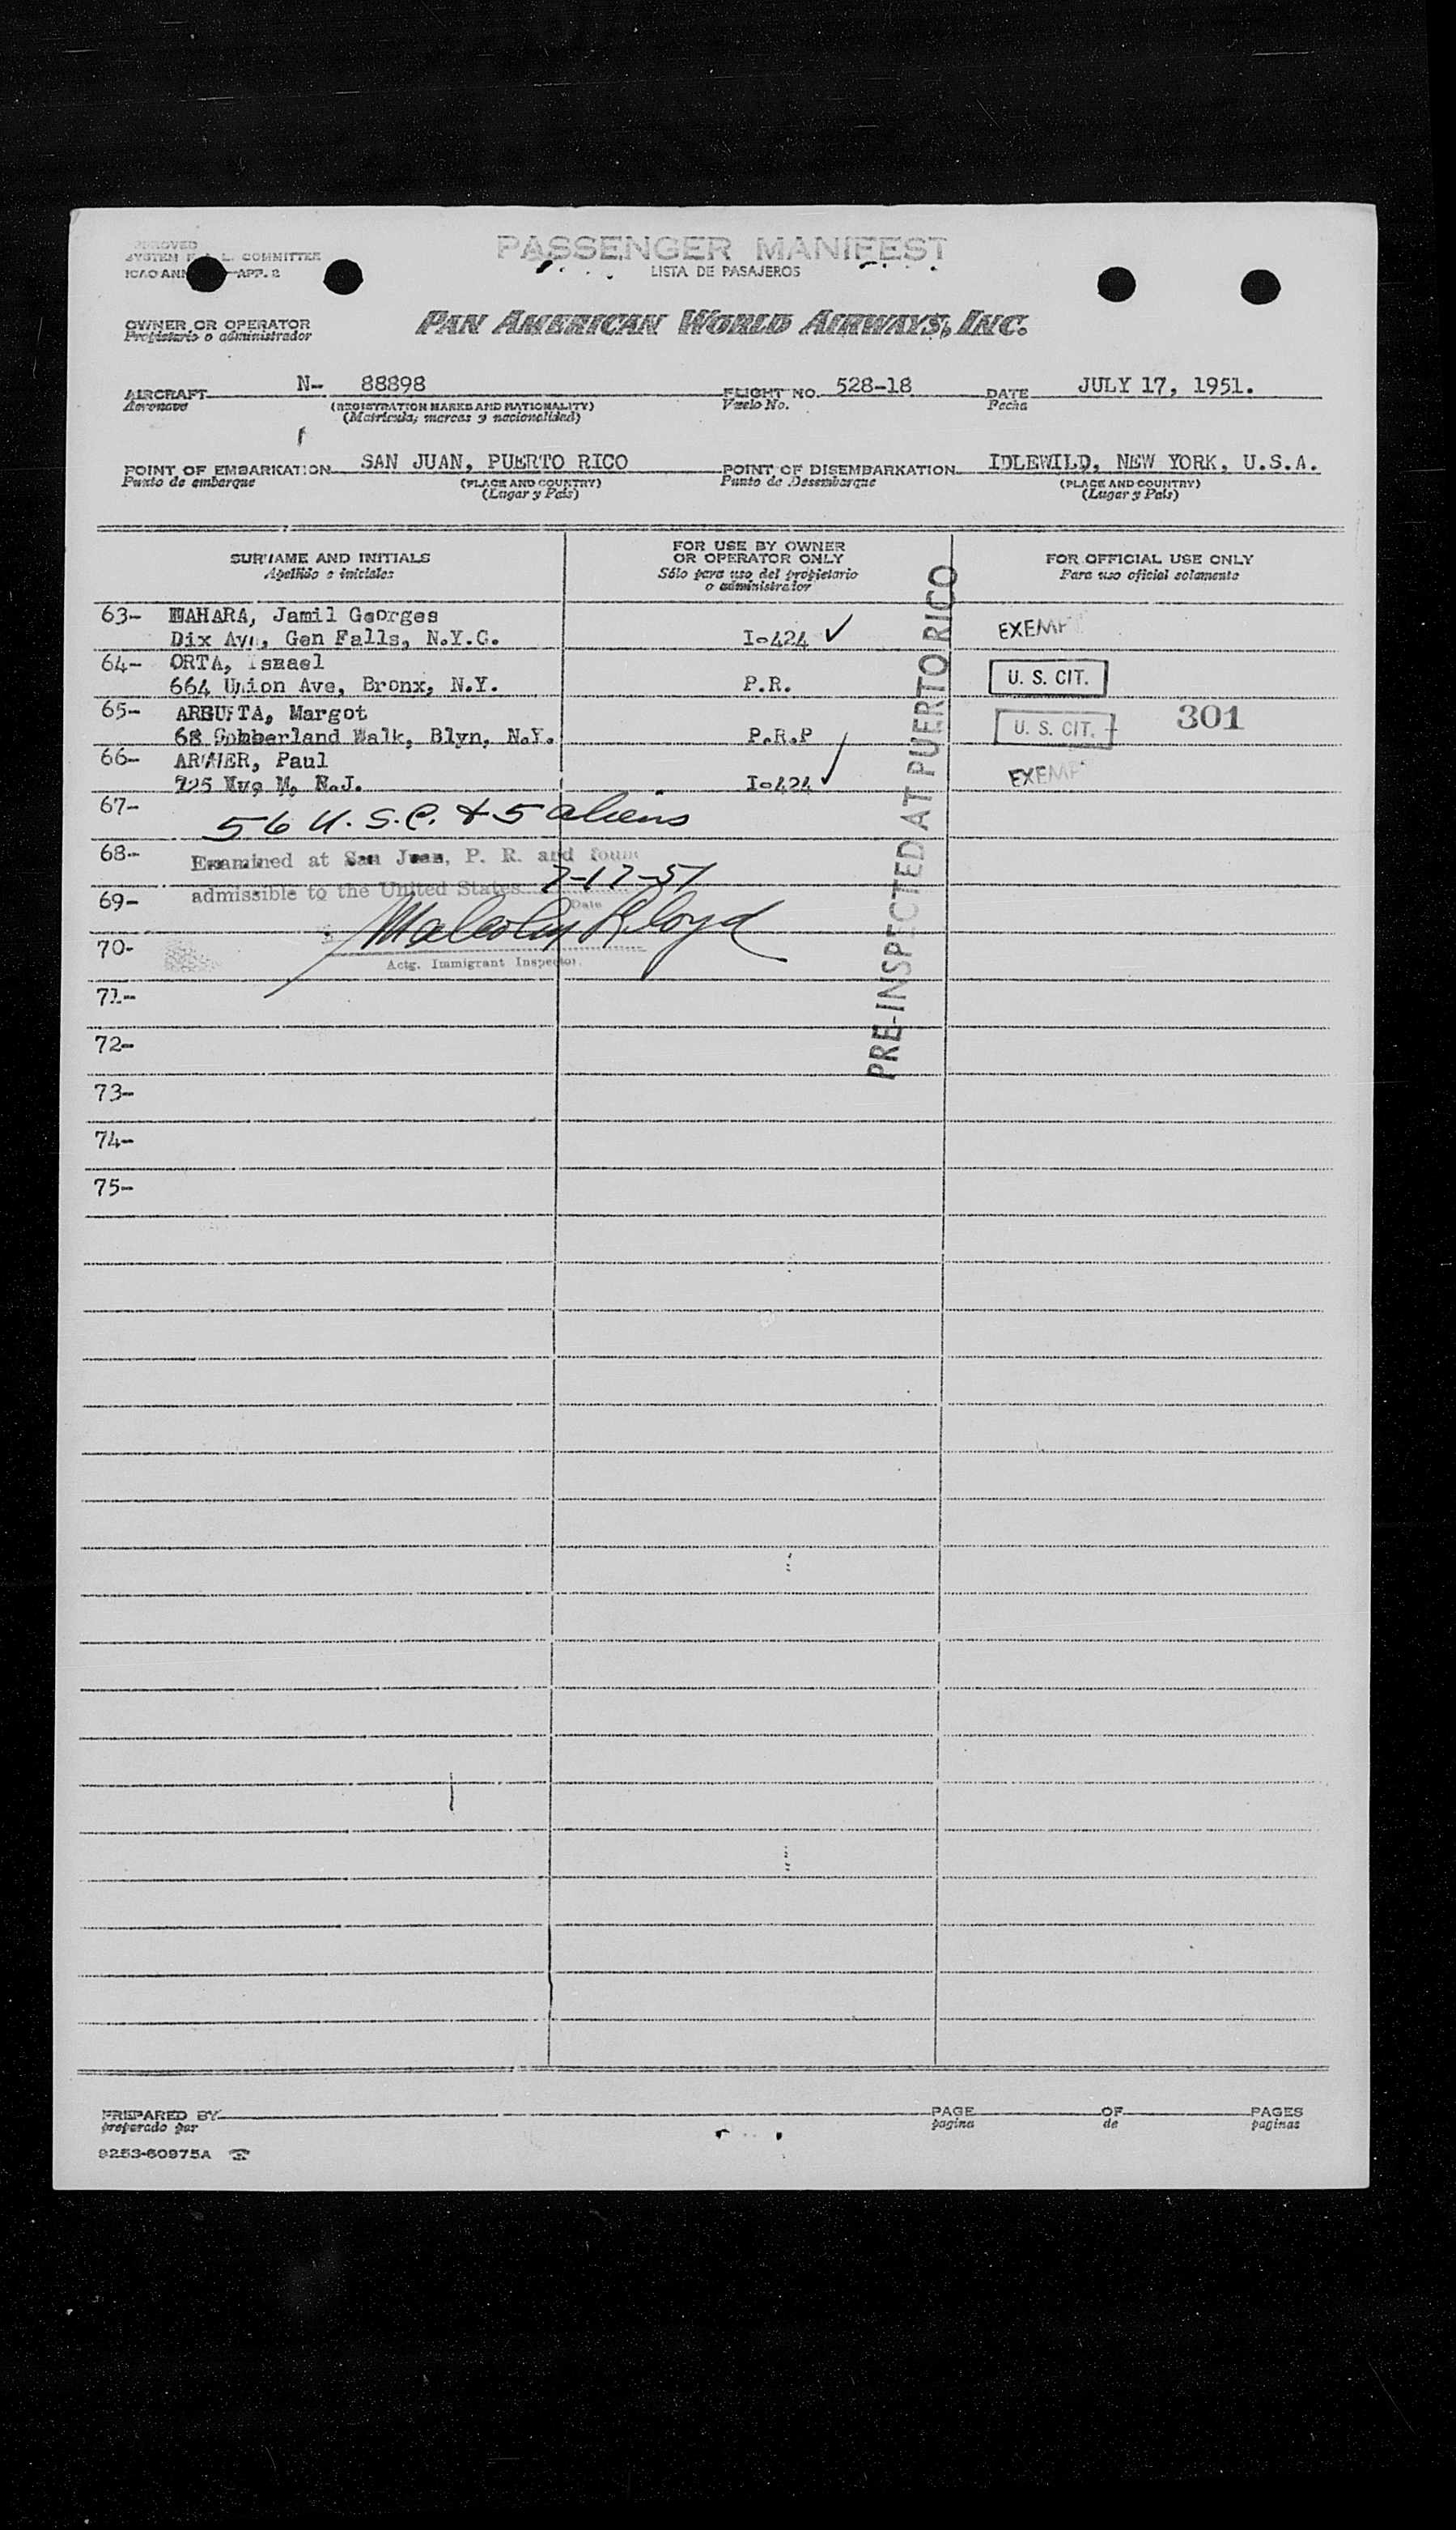 APPROVED
SYSTEM F. A. L. COMMITTEE
ICAO ANN APP. 2
PASSENGER MANIFEST
LISTA DE PASAJEROS
OWNER OR OPERATOR
Propietario o administrador
PAN AMERICAN WORLD AIRWAYS, INC.
AIRCRAFT N- 88898 FLIGHT NO. 528-18 DATE JULY 17, 1951.
Aeronave (REGISTRATION MARKS AND NATIONALITY) Vuelo No. Fecha
(Matrícula, marcas y nacionalidad)
POINT OF EMBARKATION SAN JUAN, PUERTO RICO POINT OF DISEMBARKATION IDLEWILD, NEW YORK, U.S.A.
Punto de embarque (PLACE AND COUNTRY) Punto de Desembarque (PLACE AND COUNTRY)
(Lugar y País) (Lugar y País)
SURNAME AND INITIALS
Apellido e iniciales
FOR USE BY OWNER
OR OPERATOR ONLY
Sólo para uso del propietario
o administrador
FOR OFFICIAL USE ONLY
Para uso oficial solamente
63- Jamil Georges
Dix Ave, Gen Falls, N.Y.C. I-424 ✓ EXEMPT
64- ORTA, Ismael
664 Union Ave, Bronx, N.Y. P.R. U. S. CIT.
65- Margot
68 Walk, Blyn, N.Y. P.R.P U. S. CIT. 301
66- Paul
N.J. I-424 ✓ EXEMPT
67- 56 U.S.C. & 5 aliens
68- Examined at San Juan, P. R. and found
admissible to the United States 7-17-51
69- Date
Malcolm Lloyd
70-
Actg. Immigrant Inspector.
71-
72-
73-
74-
75-
PRE-INSPECTED AT PUERTO RICO
PREPARED BY PAGE OF PAGES
preparado por pagina de paginas
9253-60975A